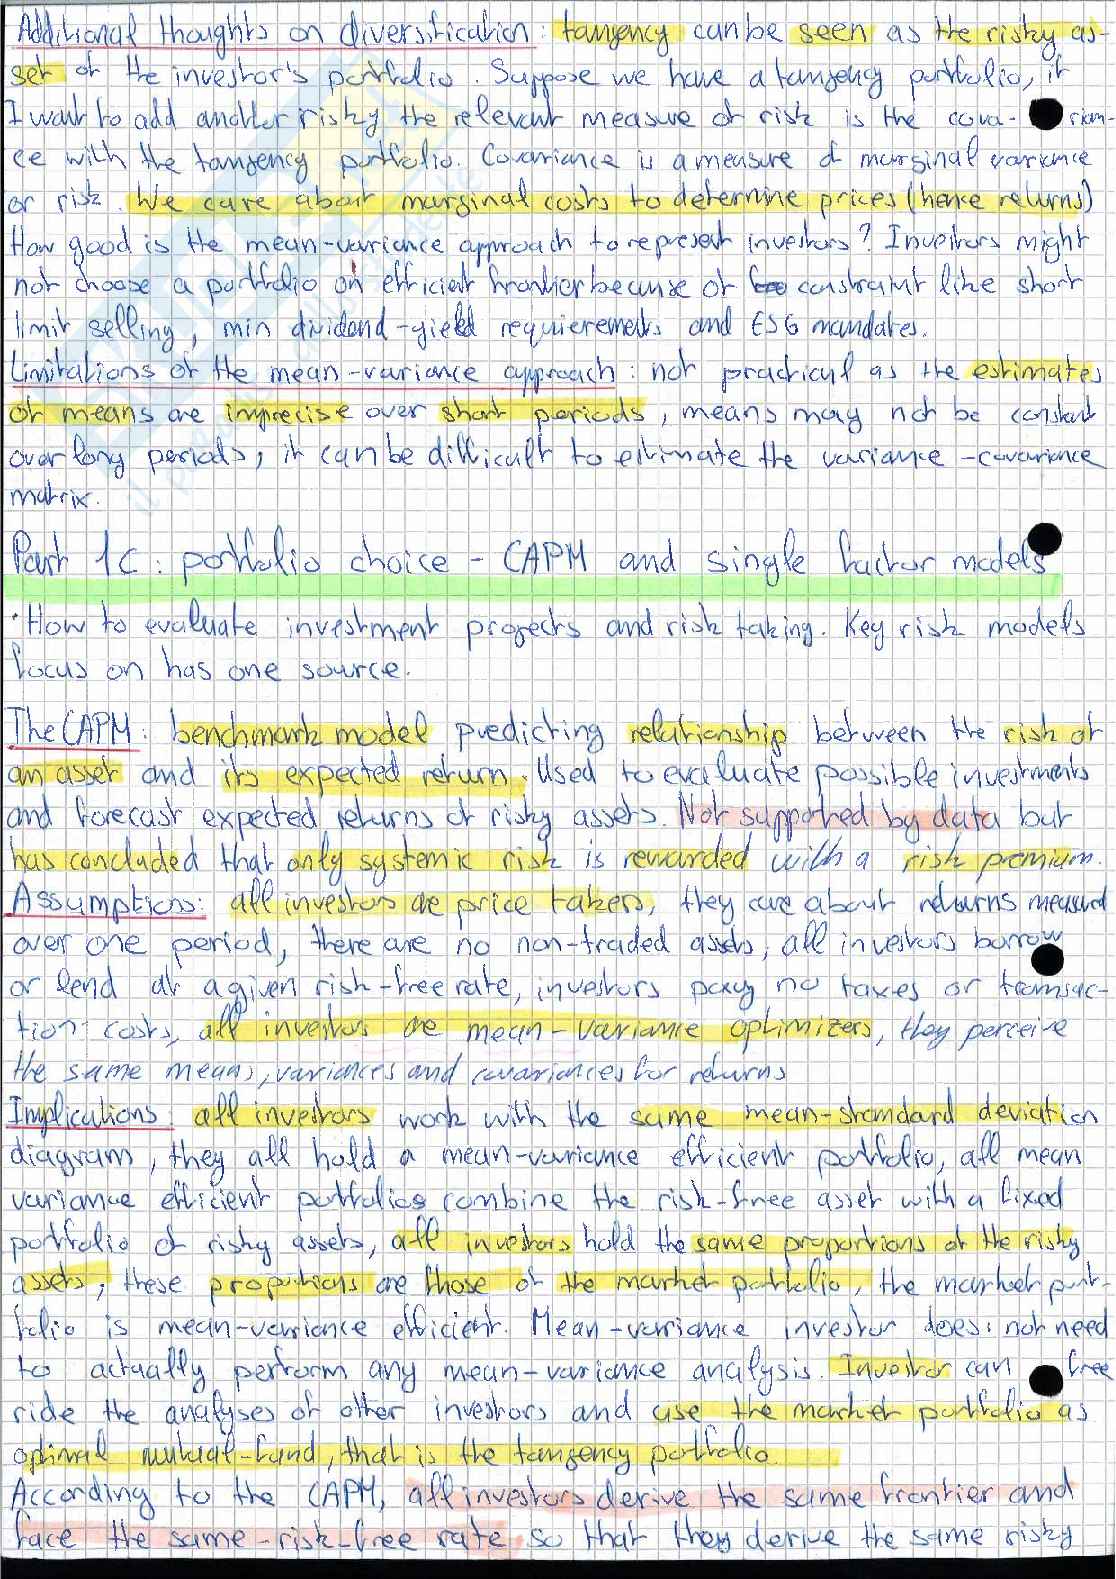 Additional thoughts on diversification: tangency can be seen as the risky as-
set of the investor's portfolio. Suppose we have a tangency portfolio, if
I want to add another risky the relevant measure of risk is the cova- rian-
ce with the tangency portfolio. Covariance is a measure of marginal variance
or risk. We care about marginal costs to determine prices (hence returns)
How good is the mean-variance approach to represent investors? Investors might
not choose a portfolio on efficient frontier because of constraint like short
limit selling, min dividend-yield requierements and ESG mandates.
Limitations of the mean-variance approach: not practical as the estimates
of means are imprecise over short periods, means may not be constant
over long periods, it can be difficult to estimate the variance-covariance
matrix.
Part 1C: portfolio choice - CAPM and single factor models
• How to evaluate investment projects and risk taking. Key risk models
focus on has one source.
The CAPM: benchmark model predicting relationship between the risk of
an asset and its expected return. Used to evaluate possible investments
and forecast expected returns of risky assets. Not supported by data but
has concluded that only systemic risk is rewarded with a risk premium.
Assumptions: all investors are price takers, they care about returns measured
over one period, there are no non-traded assets, all investors borrow
or lend at a given risk-free rate, investors pay no taxes or transac-
tion costs, all investors are mean-variance optimizers, they perceive
the same means, variances and covariances for returns
Implications: all investors work with the same mean-standard deviation
diagram, they all hold a mean-variance efficient portfolio, all mean
variance efficient portfolios combine the risk-free asset with a fixed
portfolio of risky assets, all investors hold the same proportions of the risky
assets, these proportions are those of the market portfolio, the market port-
folio is mean-variance efficient. Mean-variance investor does not need
to actually perform any mean-variance analysis. Investor can free
ride the analyses of other investors and use the market portfolio as
optimal mutual-fund, that is the tangency portfolio.
According to the CAPM, all investors derive the same frontier and
face the same risk-free rate so that they derive the same risky